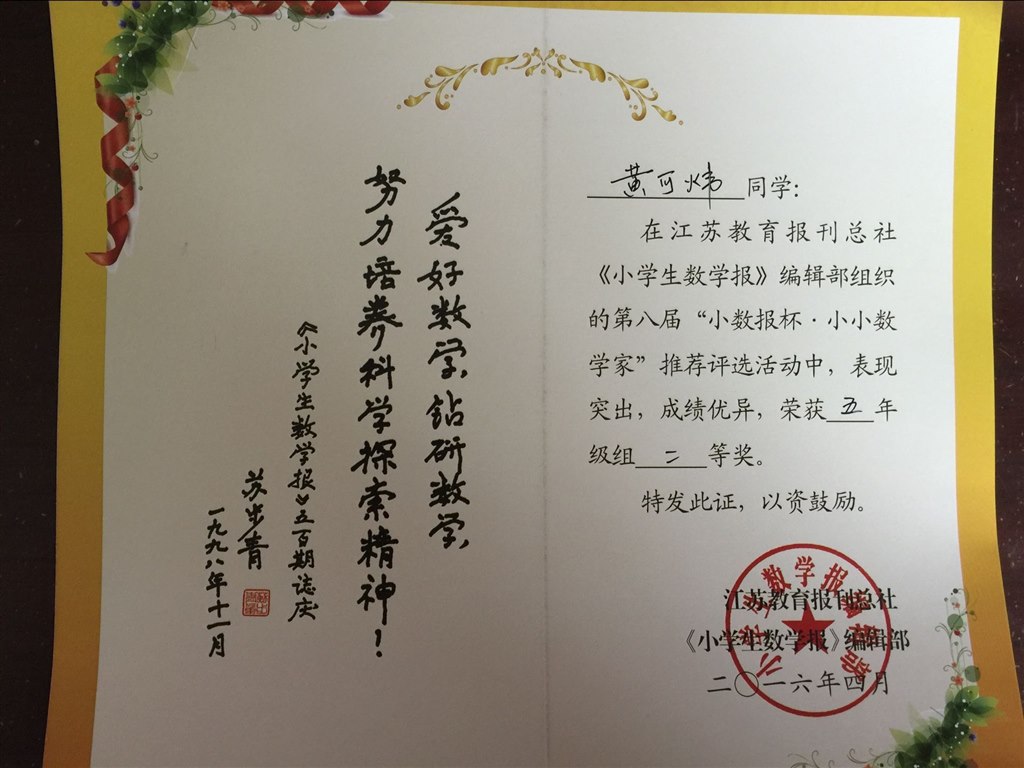 爱好数学,钻研数学,
努力培养科学探索精神!
《小学生数学报》五百期志庆
苏步青
一九九八年十一月
黄可炜同学:
在江苏教育报刊总社
《小学生数学报》编辑部组织
的第八届“小数报杯·小小数
学家”推荐评选活动中,表现
突出,成绩优异,荣获五年
级组二等奖。
特发此证,以资鼓励。
江苏教育报刊总社
《小学生数学报》编辑部
二〇一六年四月
小学生数学报编辑部